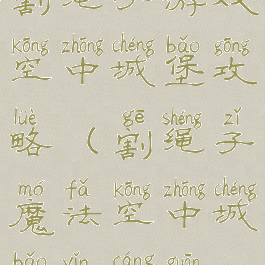 割绳子游戏
kōng zhōng chéng bǎo gōng
空中城堡攻
lüè gē shéng zǐ
略(割绳子
mó fǎ kōng zhōng chéng
魔法空中城
bǎo yǐn cáng guān